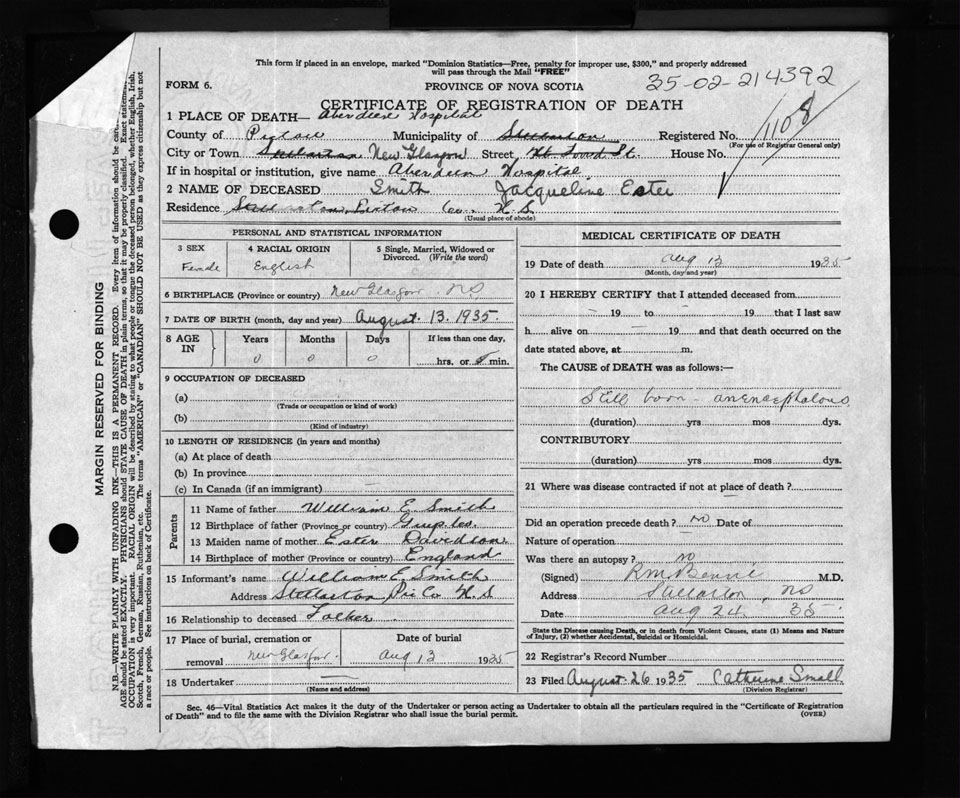 This form if placed in an envelope, marked "Dominion Statistics—Free, penalty for improper use, $300," and properly addressed
will pass through the Mail "FREE"
35-02-214392
FORM 6.
PROVINCE OF NOVA SCOTIA
CERTIFICATE OF REGISTRATION OF DEATH
1108
1 PLACE OF DEATH— Aberdeen Hospital
County of Pictou Municipality of Stellarton Registered No.
(For use of Registrar General only)
City or Town Stellarton New Glasgow Street St. House No.
If in hospital or institution, give name Aberdeen Hospital
2 NAME OF DECEASED Smith Jacqueline Ester
Residence Stellarton, Pictou Co. N.S.
(Usual place of abode)
PERSONAL AND STATISTICAL INFORMATION
3 SEX Female
4 RACIAL ORIGIN English
5 Single, Married, Widowed or Divorced. (Write the word)
6 BIRTHPLACE (Province or country) New Glasgow NS
7 DATE OF BIRTH (month, day and year) August 13. 1935
8 AGE IN Years Months Days If less than one day,
0 0 0 hrs. or min.
9 OCCUPATION OF DECEASED
(a)
(Trade or occupation or kind of work)
(b)
(Kind of industry)
10 LENGTH OF RESIDENCE (in years and months)
(a) At place of death
(b) In province
(c) In Canada (if an immigrant)
Parents
11 Name of father William E. Smith
12 Birthplace of father (Province or country)
13 Maiden name of mother Ester Davidson
14 Birthplace of mother (Province or country) England
15 Informant's name William E. Smith
Address Stellarton, Pic Co N.S
16 Relationship to deceased Father
17 Place of burial, cremation or removal New Glasgow. Date of burial Aug 13 1935
18 Undertaker
(Name and address)
MEDICAL CERTIFICATE OF DEATH
19 Date of death Aug 13 1935
(Month, day and year)
20 I HEREBY CERTIFY that I attended deceased from
19 to 19 that I last saw
h alive on 19 and that death occurred on the
date stated above, at m.
The CAUSE of DEATH was as follows:—
Still born - anencephalous
(duration) yrs mos dys.
CONTRIBUTORY
(duration) yrs mos dys.
21 Where was disease contracted if not at place of death?
Did an operation precede death? no Date of
Nature of operation
Was there an autopsy? no
(Signed) M.D.
Address Stellarton, NS
Date Aug 24 35
State the Disease causing Death, or in death from Violent Causes, state (1) Means and Nature
of Injury, (2) whether Accidental, Suicidal or Homicidal.
22 Registrar's Record Number
23 Filed August 26 1935 Catherine Small
(Division Registrar)
Sec. 46—Vital Statistics Act makes it the duty of the Undertaker or person acting as Undertaker to obtain all the particulars required in the "Certificate of Registration
of Death" and to file the same with the Division Registrar who shall issue the burial permit. (OVER)
MARGIN RESERVED FOR BINDING
N.B.—WRITE PLAINLY WITH UNFADING INK—THIS IS A PERMANENT RECORD. Every item of information should be
AGE should be stated EXACTLY. PHYSICIANS should STATE CAUSE OF DEATH in plain terms, so that it may be properly classified. Exact
OCCUPATION is very important. RACIAL ORIGIN will be described by stating to what people or tongue the deceased person belonged, whether English, Irish,
Scotch, French, German, Russian, Ruthenian, etc. The terms "AMERICAN" or "CANADIAN" SHOULD NOT BE USED as they express citizenship but not
a race or people. See instructions on back of Certificate.